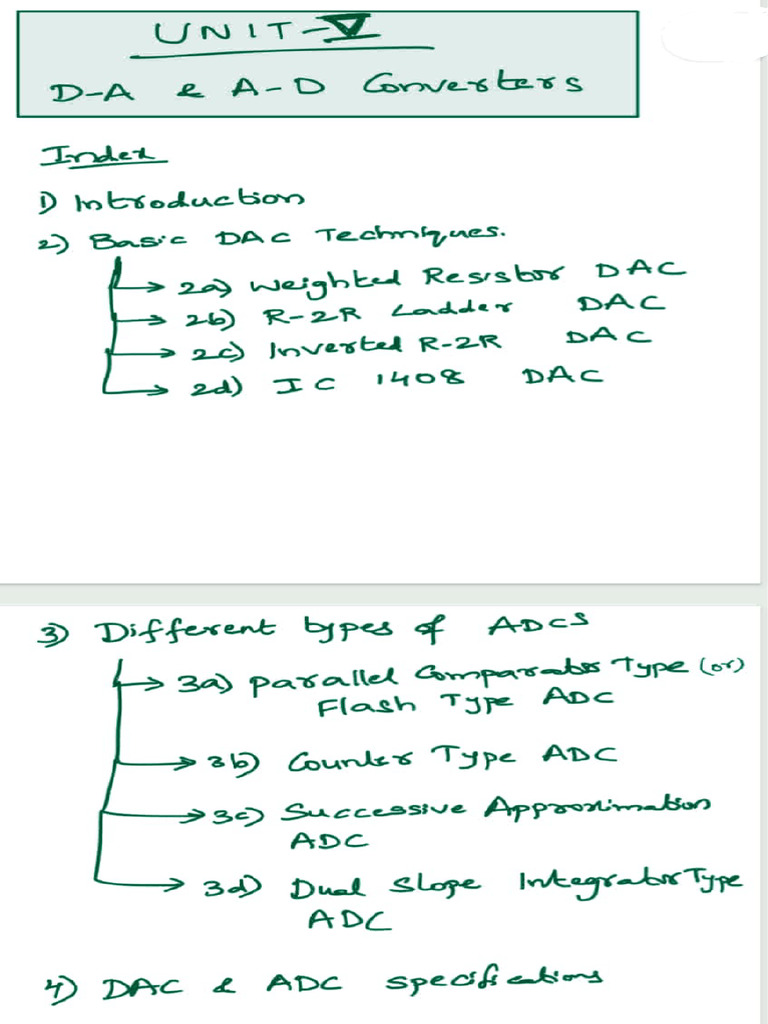 UNIT-V
D-A & A-D Converters
Index
1) Introduction
2) Basic DAC Techniques.
2a) Weighted Resistor DAC
2b) R-2R Ladder DAC
2c) Inverted R-2R DAC
2d) IC 1408 DAC
3) Different types of ADCS
3a) Parallel Comparator Type (or)
Flash Type ADC
3b) Counter Type ADC
3c) Successive Approximation
ADC
3d) Dual Slope Integrator Type
ADC
4) DAC & ADC specifications